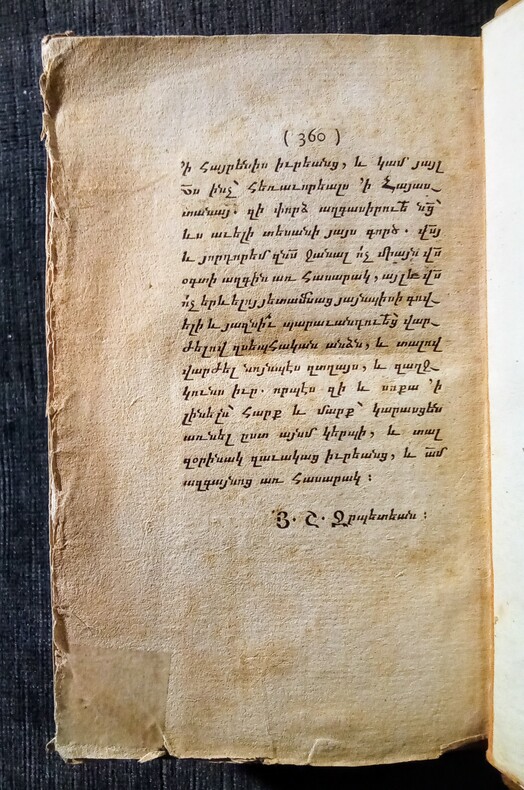 ( 360 )
'ի Հայրենիս իւրեանց, և կամ յայլ
ինչ՝ հեռաւորեալս 'ի Հայաս֊
տանայ. զի փորձ ազգասիրուէ՛
ևս աւելի տեսանի յայս գործ.
և յորդորեմ ջանալ ո՛չ միայն վս̃
օգտի ազգին առ հասարակ, այլև վս̃
ո՛չ երևելոյ յետամնաց յայնպիսի գով֊
ելի և յազնիւ վար֊
ժելով զսեպհական անձն, և տալով
վարժել նոյնպէս զտղայս, և զաղջ֊
կունս իւր. որպէս զի և սոքա 'ի
լինելն՝ հարք և մարք՝ կարասցեն
առնել ըստ այսմ կերպի, և տալ
զօրինակ զաւակաց իւրեանց, և ա̃մ
ազգայնոց առ հասարակ :
Յ. Շ. Ջրպետեան :